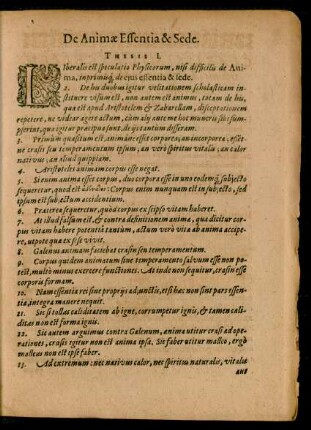 De Animæ Essentia & Sede.
THESIS I.
Liberalis est speculatio Physicorum, nisi difficilis de Ani-
ma, inprimisq́; de ejus essentia & sede.
2. De his duobus igitur velitationem scholasticam in-
stituere visum est, non autem est animus, totam de his,
quæ est apud Aristotelem & Zabarellam, disceptationem
repetere, ne videar agere actum, cùm alij autem hoc muneris sibi sum-
pserint, quo igitur præcipua sunt, de ijs tantùm disseram.
3. Primùm quæsitum est, an animæ esset corporea, an incorporea, est-
ne crasis seu temperamentum ipsum, an verò spiritus vitalis, an calor
nativus, an aliud quippiam.
4. Aristoteles animam corpus esse negat.
5. Si enim anima esset corpus, duo corpora esse in uno eodemq́; subjecto
sequeretur, quod est Corpus enim nunquam est in subjecto, sed
ipsum est subjectum accidentium.
6. Præterea sequeretur, quòd corpus ex se ipso vitam haberet.
7. At illud falsum est, & contra definitionem animæ, quæ dicitur cor-
pus vitam habere potentiâ tantùm, actum verò vitæ ab anima accipe-
re, utpote quæ ex se ipse vivit.
8. Galenus animam faciebat crasin seu temperamentum.
9. Corpus quidem animatum sine temperamento salvum esse non po-
test, multò minus exercere functiones. At inde non sequitur, crasin esse
corporis formam.
10. Nam essentiæ rei sunt proprijs adjunctis, etsi hæc non sint pars essen-
tiæ, integra manere nequit.
11. Sic si tollas caliditatem ab igne, corrumpetur ignis, & tamen cali-
ditas non est forma ignis.
12. Sic autem arguimus contra Galenum, anima utitur crasi ad ope-
rationes, crasis igitur non est anima ipsa. Sic faber utitur malleo, ergò
malleus non est ipse faber.
13. Ad extremum: nec nativus calor, nec spiritus naturalis, vitalis
ani